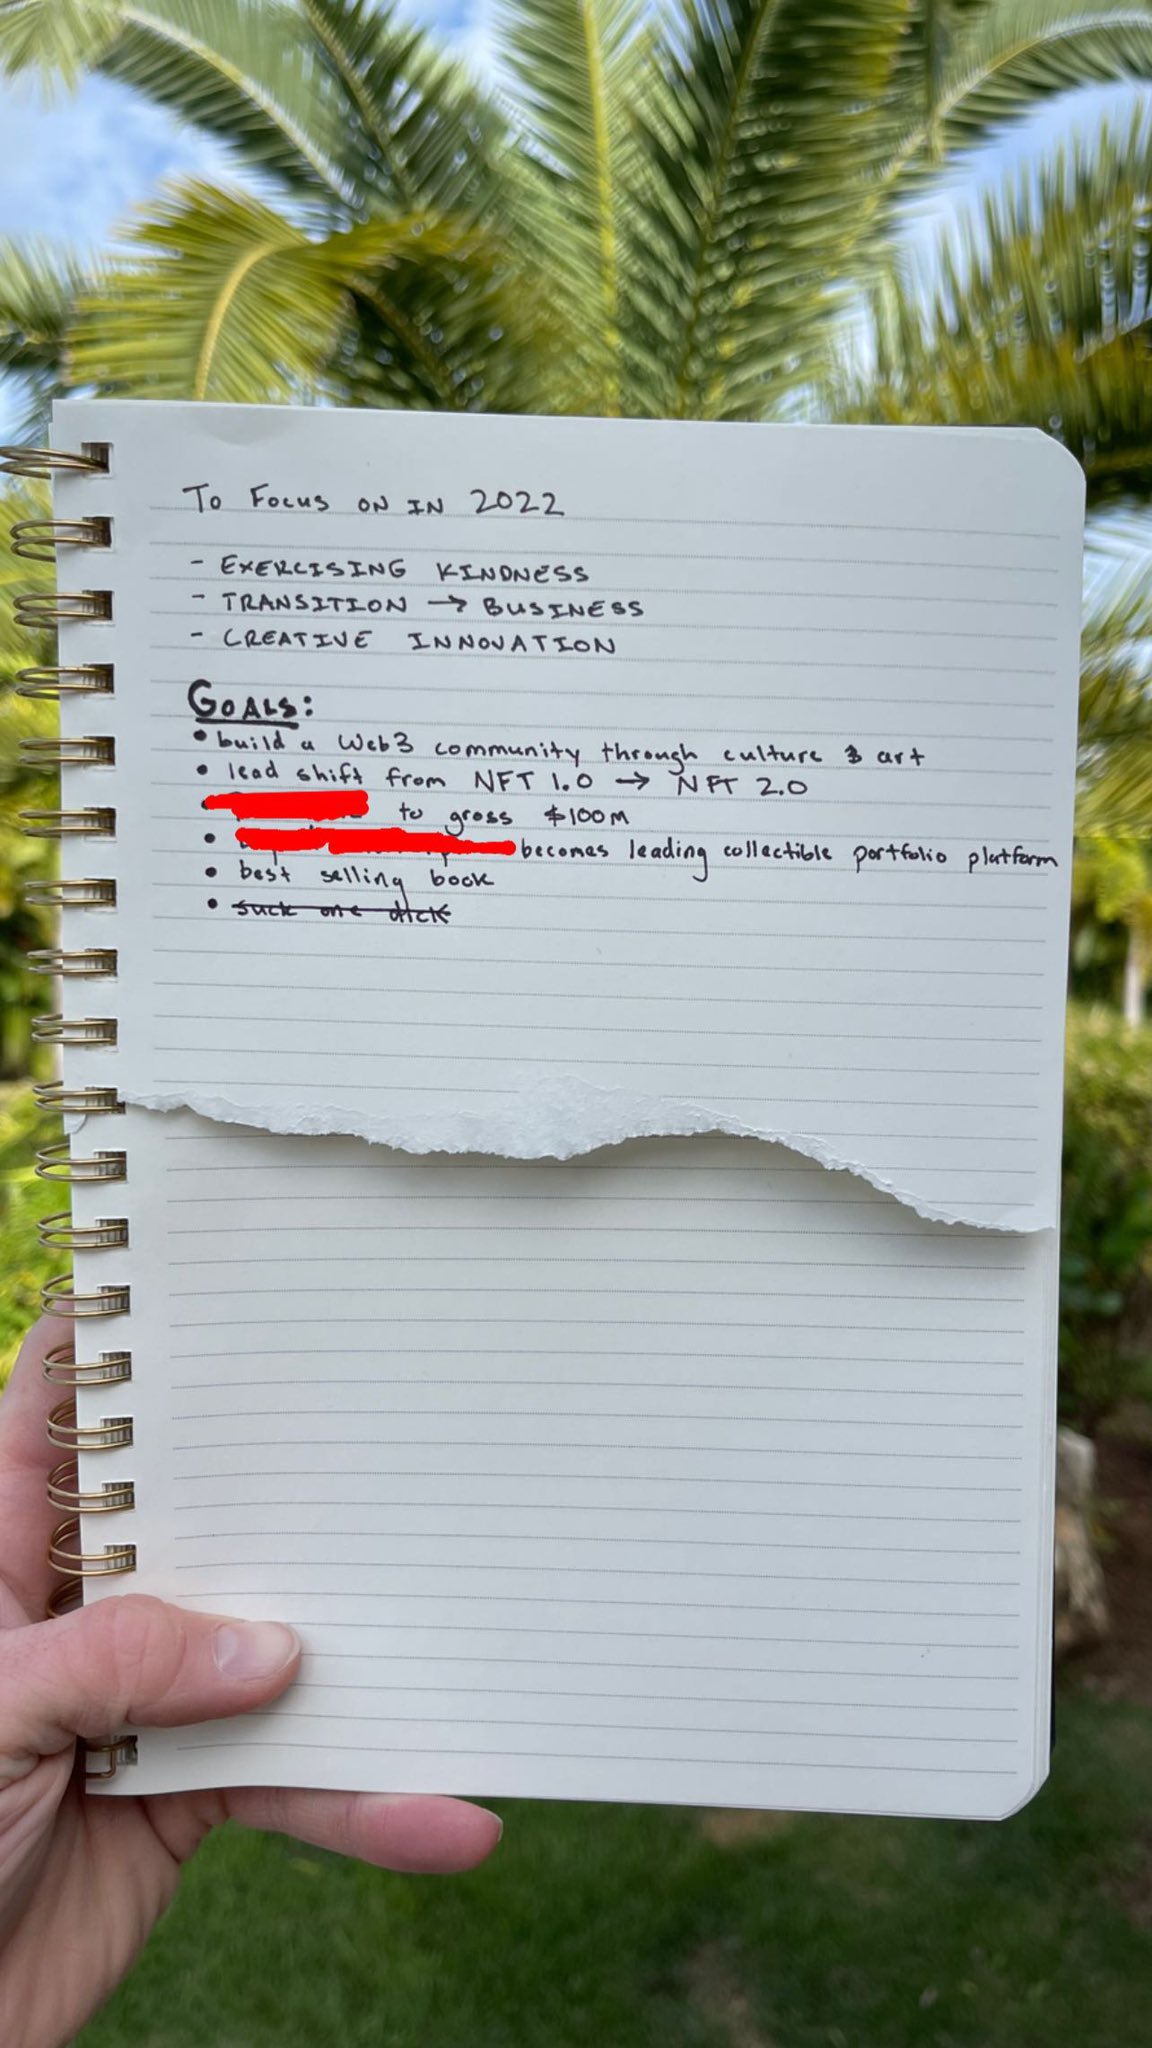 To Focus ON IN 2022
- EXERCISING KINDNESS
- TRANSITION → BUSINESS
- CREATIVE INNOVATION
GOALS:
• build a Web3 community through culture & art
• lead shift from NFT 1.0 → NFT 2.0
• to gross $100M
• becomes leading collectible portfolio platform
• best selling book
• suck one dick